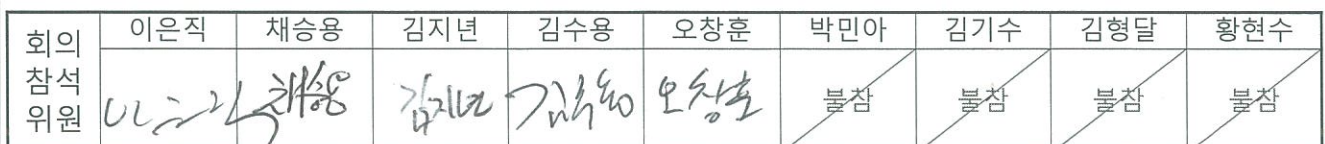 회의 참석 위원
이은직 채승용 김지년 김수용 오창훈 박민아 김기수 김형달 황현수
이은직 채승용 김지년 김수용 오창훈 불참 불참 불참 불참